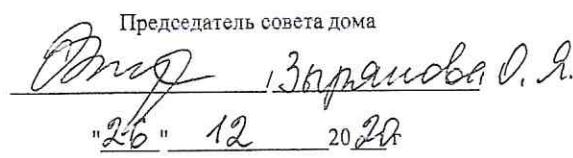 Председатель совета дома
/Зырянова О.Я.
"26" 12 2020г